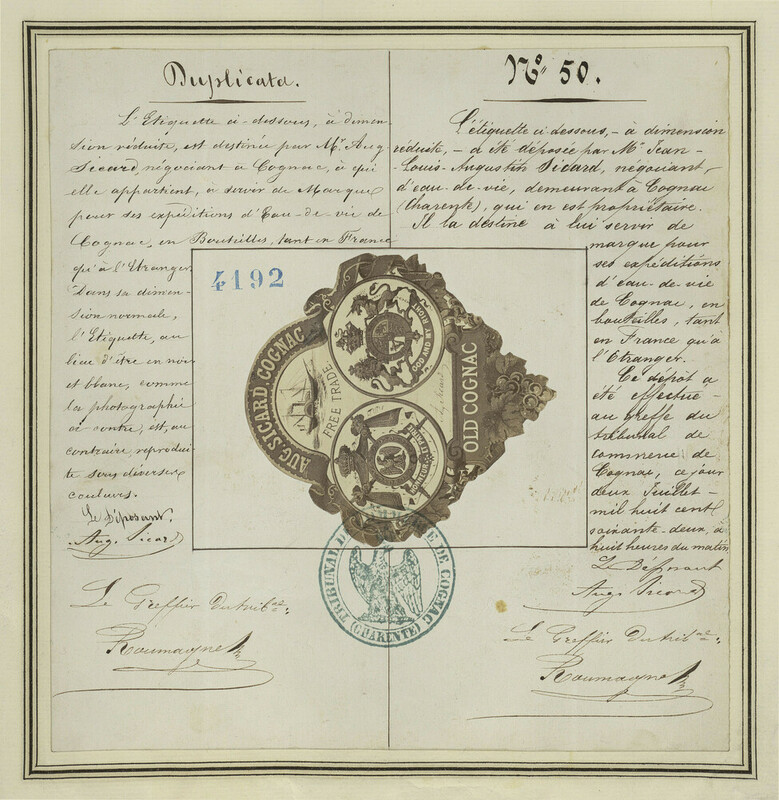 Duplicata.
L'Etiquette ci-dessous, à dimen-
sion réduite, est destinée par Mr. Aug.
Sicard, négociant à Cognac, à qui
elle appartient, à servir de Marque
pour ses expéditions d'Eau-de-vie de
Cognac, en Bouteilles, tant en France
qu'à l'Etranger.
Dans sa dimen-
sion normale,
l'Etiquette, au
lieu d'être en noir
et blanc, comme
la photographie
ci contre, est, au
contraire, reprodui-
te sous diverses
couleurs.
Le Déposant,
Aug. Sicard
Le Greffier du trib.al:
Roumagne
N° 50.
L'étiquette ci dessous, - à dimension
réduite, - a été déposée par Mr. Jean-
Louis-Augustin Sicard, négociant,
d'eau-de-vie, demeurant à Cognac
(Charente), qui en est propriétaire.
Il la destine à lui servir de
marque pour
ses expéditions
d'eau-de-vie
de Cognac, en
bouteilles, tant
en France qu'à
l'Etranger.
Ce dépôt a
été effectué
au greffe du
tribunal de
commerce de
Cognac, ce jour
deux Juillet
mil huit cent
soixante-deux, à
huit heures du matin
Le Déposant
Aug. Sicard
Le Greffier du trib.al:
Roumagne
4192
AUG. SICARD. COGNAC
FREE TRADE
GOD AND MY RIGHT
OLD COGNAC
TRIBUNAL DE COMMERCE DE COGNAC
(CHARENTE)